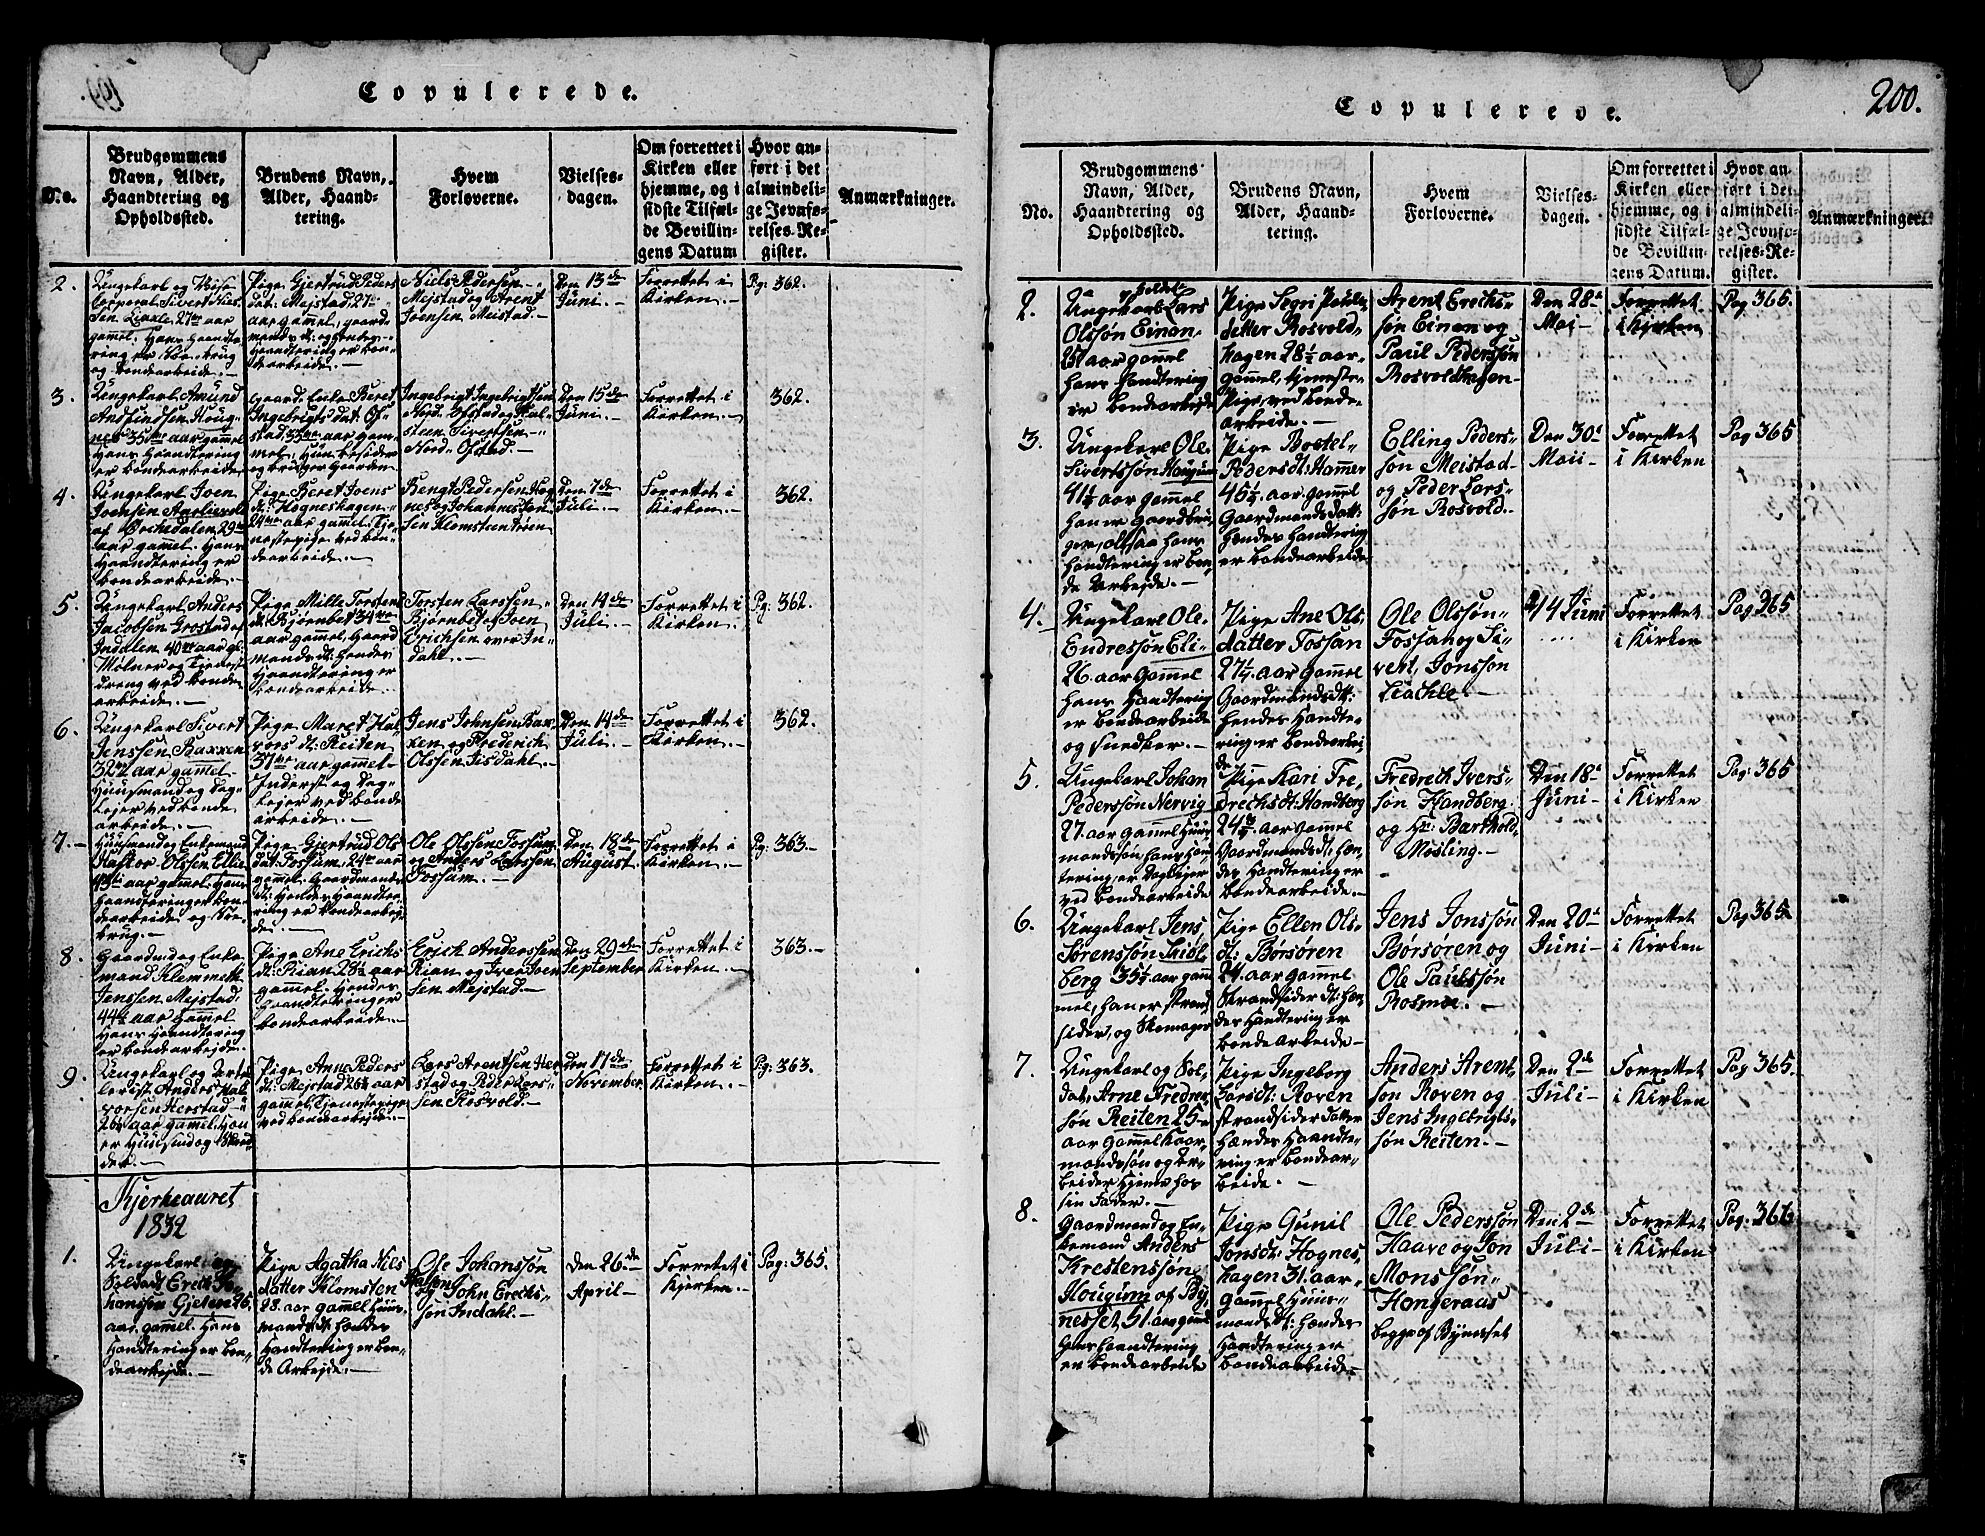 Copulerede.
No.
Brudgommens
Navn, Alder,
Haandtering og
Opholdssted.
Brudens Navn,
Alder, Haand-
tering.
Hvem
Forloverne.
Vielses-
dagen.
Om forrettet i
Kirken eller
hjemme, og i
sidste Tilfæl-
de Bevillin-
gens Datum
Hvor an-
ført i det
almindeli-
ge Jevnfø-
relses-Re-
gister.
Anmærkninger.
2.
Ungekarl og
Corporal Sivert
27 aar
gammel. Hans Haandte-
ring er
og bondearbeide.-
Pige Gjertrud Peders
dat: Mejstad 27
aar gammel, gaard-
mands dt: og hendes
Haandtering er bon-
dearbeide.-
Niels Pedersen
Mejstad og Arent
Joensen Meistad.-
Den 13de
Juni.-
Forrettet i
Kirken.-
Pg: 362.
3.
Ungekarl Amund
Amundsen Houg-
nes 35 aar gammel
Hans Haandtering
er bondearbeide.
gaard Enke Beret
Ingebrigts dat: Of-
stad, 33 aar gam-
mel, Hun besider
og bruger Gaarden
Ingebrigt Ingebrigtsen
Nord. Ofstad og Hal-
steen Sivertsen
Nord. Ofstad.-
Den 15de
Juni.-
Forrettet i
Kirken.-
362.
4.
Ungekarl Joen
Joensen
af Orchedalen 29
aar gammel. Hans
Haandtering er
bondearbeide.-
Pige Beret Joens
dt: Hogneshagen
24 aar gammel Tje-
nestepige ved bon-
dearbeide.-
Bengt Pedersen Hog
nes og Johannes Jon
sen Klomsten
Den 7de
Juli.-
Forrettet i
Kirken.-
362.
5.
Ungekarl Anders
Jacobsen Grostad af
Indalen 40 aar g:
Mølner og Tjeneste
dreng ved bonde
arbeide.-
Pige Mille Torstens
dt: Bjørnbet 34
aar gammel Gaard
mands dt: Hendes
Haandtering er
bondearbeide.
Torsten Larssen
Bjørnbet og Joen
Erichsen over In-
dahl.-
Den 14de
Juli.-
Forrettet i
Kirken.-
Pg: 362.
6.
Ungekarl Sivert
Jenssen Baxxen
32 aar gammel.
Huusmand og Dag-
lejer ved bonde
arbeide.-
Pige Maret Hal-
vors dt: Reiten
37 aar gammel
Inderst og Dag-
lejer ved bonde
arbeide.-
Jens Johnsen Bax-
xen og Frederich
Olssen Sisdahl.-
Den 14de
Juli.-
Forrettet i
Kirken.-
362.
7.-
Huusmand og Enkemand
Hastor Olssen Ellie
aar gammel. Hans
Haandtering er bon-
dearbeide og Sne-
krug.-
Pige Gjertrud Ols
dat: Fossum. 24 aar
gammel. Gaardmands
dt: Hendes Haandte-
ring er bondearbej-
de.-
Ole Olssen Fossum.
og Anders Larssen
Fossum.-
Den 18de
August.
Forrettet i
Kirken.-
Pg: 363.-
8.
Gaardmd og Enke
mand Klemmet
Jenssen Mejstad.
44½ aar Gammel.
Hans Haandtering
er bondearbejde.
Pige Ane Erichs
dt: Rian 28½ aar
gammel. Hendes
Haandtering er
bondearbeide.-
Erich Anderssen
Rian og Iver Joen
sen Mejstad.-
Den 29de
September
Forrettet i
Kirken.-
363.-
9.
Ungekarl og
Anders Hal
vorsen Herstad
26½ aar gammel. Han
er Huusmd og Skræd
der.-
Pige Anne Peders
dt: Mejstad 26½ aar
gammel, Tjenestepige
ved bondearbeide.-
Lars Arentsen Her
stad og Peder Lars-
sen Rosvold.-
Den 17de
November.
Forrettet i
Kirken.-
Pg: 363.
Kjerkeauret
1832
1.
Ungekarl og
Soldat Erech Jo-
hanssøn Gjeten 26.
aar gammel. Hans
Handtering er bon-
dearbejde.-
Pige Agatha Niels
datter Klomsten
28. aar gammel Huus-
mands dt: hendes
Handtering er bon-
de Arbejde.-
Ole Johanssøn
og John Erechs-
søn Indahl.-
Den 26.de
April-
Forrettet i
Kjerken.-
Pag: 365.
Copulerede.
200.
No.
Brudgommens
Navn, Alder,
Haandtering og
Opholdssted.
Brudens Navn,
Alder, Haand-
tering.
Hvem
Forloverne.
Vielses-
dagen.
Om forrettet i
Kirken eller
hjemme, og i
sidste Tilfæl-
de Bevillin-
gens Datum.
Hvor an-
ført i det
almindeli-
ge Jevnfø-
relses-Re-
gister.
Anmærkninger.
2.
Ungekarl Lars
Olssøn Einan-
25 aar gammel
hans Handtering
er bondearbejde
Pige Segri Pauls
datter Rosvold-
hagen 28½ aar-
Gammel, tjeneste-
Pige, ved bonde-
arbeide.-
Arent Erechs-
søn Einan og
Paul Pederssøn
Rosvoldhagen-
Den 28de
Mai-
Forrettet
i Kirken
Pag 365.
3.
Ungekarl Ole
Sivertssøn Hougum
41½ aar gammel
han er Gaardbru-
ger, altsaa hans
Handtering er bon-
de Arbejde.-
Pige Bostel-
Pedersdt: Hamer
45½. aar Gammel
Gaardmands datt:
Hendes Handtering
er bondearbeide
Elling Peders-
søn Meistad-
og Peder Lars-
søn Rosvold.
Den 30.
Maii-
Forrettet
i Kirken
Pag 365
4.
Ungekarl Ole
Endressøn Eli-
26. aar Gammel
hans Handtering
er bondearbeide
og Snedker.-
Pige Ane Ols
datter Fossan
27¼. aar Gammel
Gaardmands dtt:
hendes Handte-
ring er bondearbei
Ole Olssøn-
Fossan og Si-
vert, Jonssøn
Liachle.-
14 Juni
Forrettet
i Kirken
Pag 365
5.
Ungekarl Johan
Pederssøn Nervig
27. aar Gammel Huus-
mandssøn, hans Han-
tering, er Daglejer
ved bondearbeide
Pige Kari Fre
drechsdt: Handberg
aar Gammel
Gaardmandsdt: hen-
des Handtering er
bondearbeide.-
Fredrech Ivers-
søn Handberg.
og Hr: Barthold
Møsling.-
Den 18.
Juni-
Forrettet
i Kirken
Pag: 365
6.
Ungekarl Jens
Sørenssøn Skiøl
berg 35½. aar gam-
mel, han er Strand
sider, og Skomager
Pige Ellen Ols-
dt: Børsøren
24. aar Gammel
Strandsider dt: hen-
des Handtering er
bonde Arkeide-
Jens Jonssøn
Børsøren og
Ole Paulssøn
Rosmoe.-
Den 20de
Juni-
Forrettet
i Kirken
Pag 365.
7.
Ungekarl og Sol-
dat, Arne Fredrec
søn Reiten 25-
aar Gammel Gaar-
mandssøn og Ar-
beider Hjeme hos
sin Fader.-
Pige Ingeborg
Larsdt: Roven
Strandsider datter
Hændes Haandte-
ring er bondear-
beide.-
Anders Arent-
søn Roven og
Jens Ingebrigts-
søn Reiten.-
Den 2de
Juli-
Forrettet
i Kirken
Pag 365.
8.
Gaardmand og En-
kemand Anders
Krestenssøn
Hougum af By-
nesset 51. aar gammel
hans handtering
er bondearbeide
Pige Gunil
Jonsdt: Hognes-
hagen 31. aar-
Gammel Huus-
mands dt: Hændes
Handtering er
bondearbeide-
Ole Pederssøn
Haave og Jon
Monssøn-
Hangeraas
begge af Bynesset
Den 2de
Juli-
Forrettet
i Kirken
Pag: 366